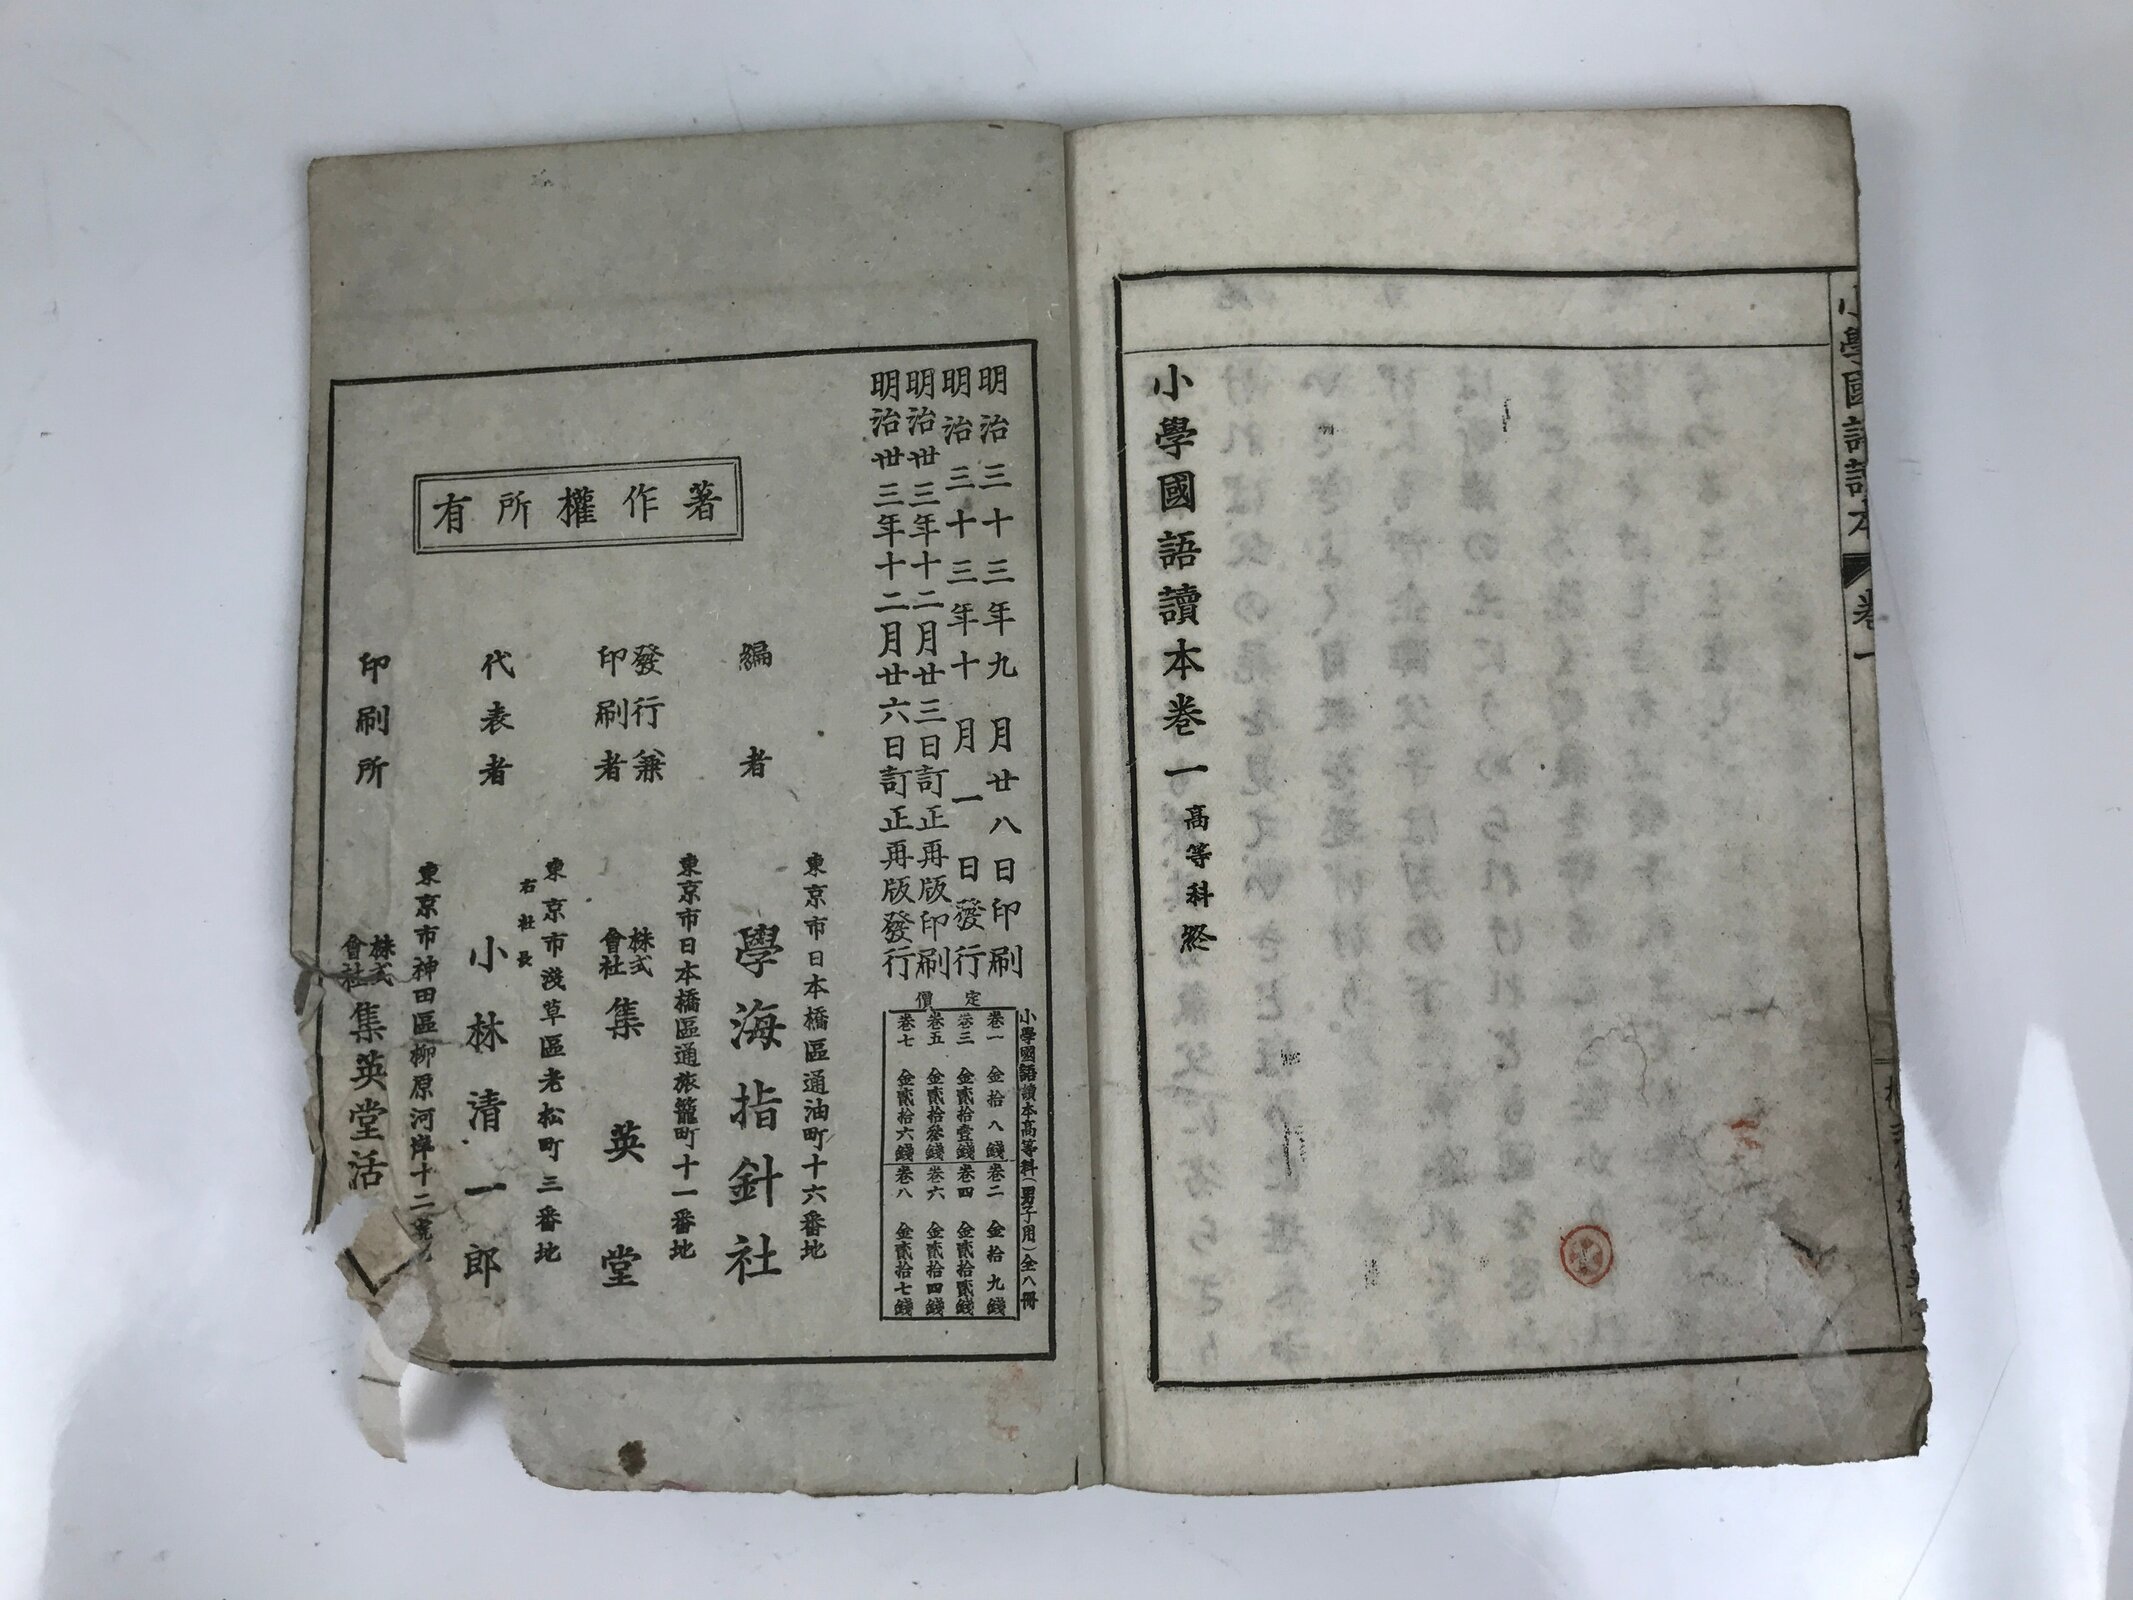 小學國語讀本
卷一
小學國語讀本卷一 高等科 終
明治三十三年九月廿八日印刷
明治三十三年十月一日發行
明治卅三年十二月廿三日訂正再版印刷
明治卅三年十二月廿六日訂正再版發行
定價
小學國語讀本高等科(男子用)全八冊
卷一 金拾八錢 卷二 金拾九錢
卷三 金貳拾壹錢 卷四 金貳拾貳錢
卷五 金貳拾參錢 卷六 金貳拾四錢
卷七 金貳拾六錢 卷八 金貳拾七錢
著作權所有
東京市日本橋區通油町十六番地
編者 學海指針社
東京市日本橋區通旅籠町十一番地
發行兼印刷者 株式會社 集英堂
東京市淺草區老松町三番地
右社長
代表者 小林清一郎
東京市神田區柳原河岸十二
印刷所 株式會社 集英堂活